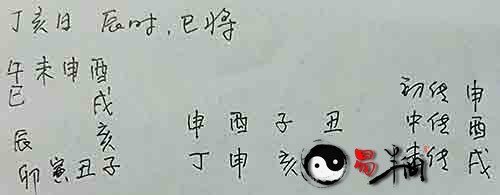 丁亥日 辰时，巳将
午未申酉
巳 戌
辰 亥
卯寅丑子
申酉子丑
丁申亥
初传 申
中传 酉
末传 戌
易